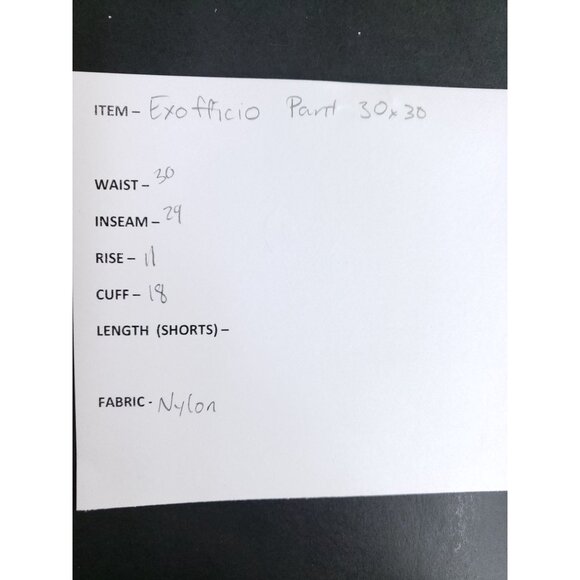 ITEM – Exofficio Pant 30x30
WAIST – 30
INSEAM – 29
RISE – 11
CUFF – 18
LENGTH (SHORTS) –
FABRIC - Nylon